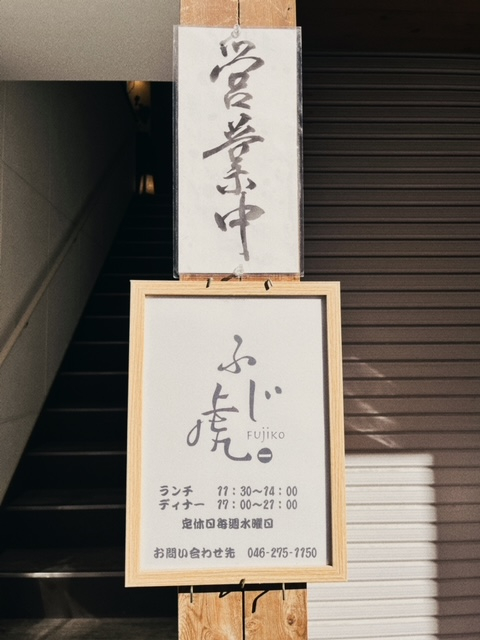 営業中
ふじ虎
FUJIKO
ランチ 11:30〜14:00
ディナー 17:00〜21:00
定休日毎週水曜日
お問い合わせ先 046-275-1150